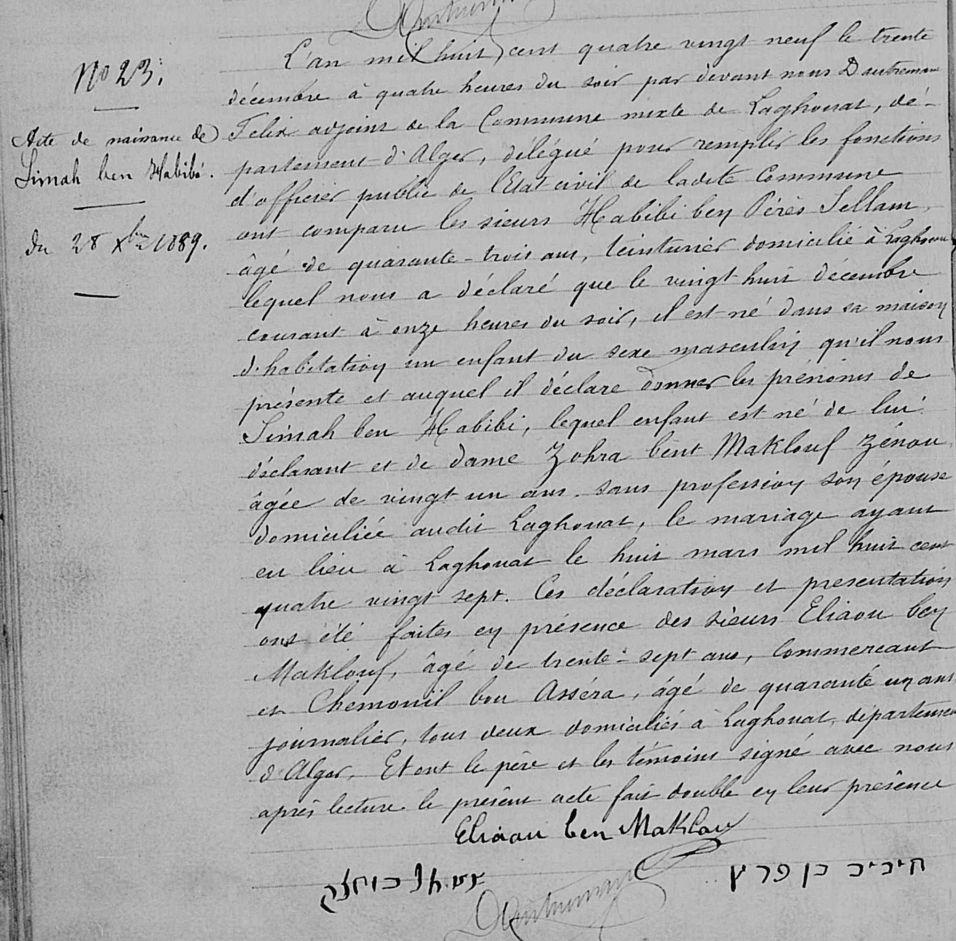 No 23.
Acte de naissance de
Simah ben Habibi.
du 28 Xbre 1889.
L'an mil huit cent quatre vingt neuf le trente
décembre à quatre heures du soir par devant nous Dautremau
Felix adjoint de la Commune mixte de Laghouat, dé-
partement d'Alger, délégué pour remplir les fonctions
d'officier public de l'Etat civil de ladite Commune
ont comparu les sieurs Habibi ben Pérès Sellam,
âgé de quarante-trois ans, teinturier domicilié à Laghouat
lequel nous a déclaré que le vingt huit décembre
courant à onze heures du soir, il est né dans sa maison
d'habitation un enfant du sexe masculin qu'il nous
présente et auquel il déclare donner les prénoms de
Simah ben Habibi, lequel enfant est né de lui
déclarant et de dame Zohra bent Maklouf Zénou
âgée de vingt un ans sans profession son épouse
domiciliée audit Laghouat, le mariage ayant
eu lieu à Laghouat le huit mars mil huit cent
quatre vingt sept. Ces déclaration et présentation
ont été faites en présence des sieurs Eliaou ben
Maklouf, âgé de trente-sept ans, commercant
et Chemouil bou Asséra, âgé de quarante un ans
journalier, tous deux domiciliés à Laghouat, département
d'Alger. Et ont le père et les témoins signé avec nous
après lecture le présent acte fait double en leur présence
Eliaou ben Maklou
חביב בן פרץ